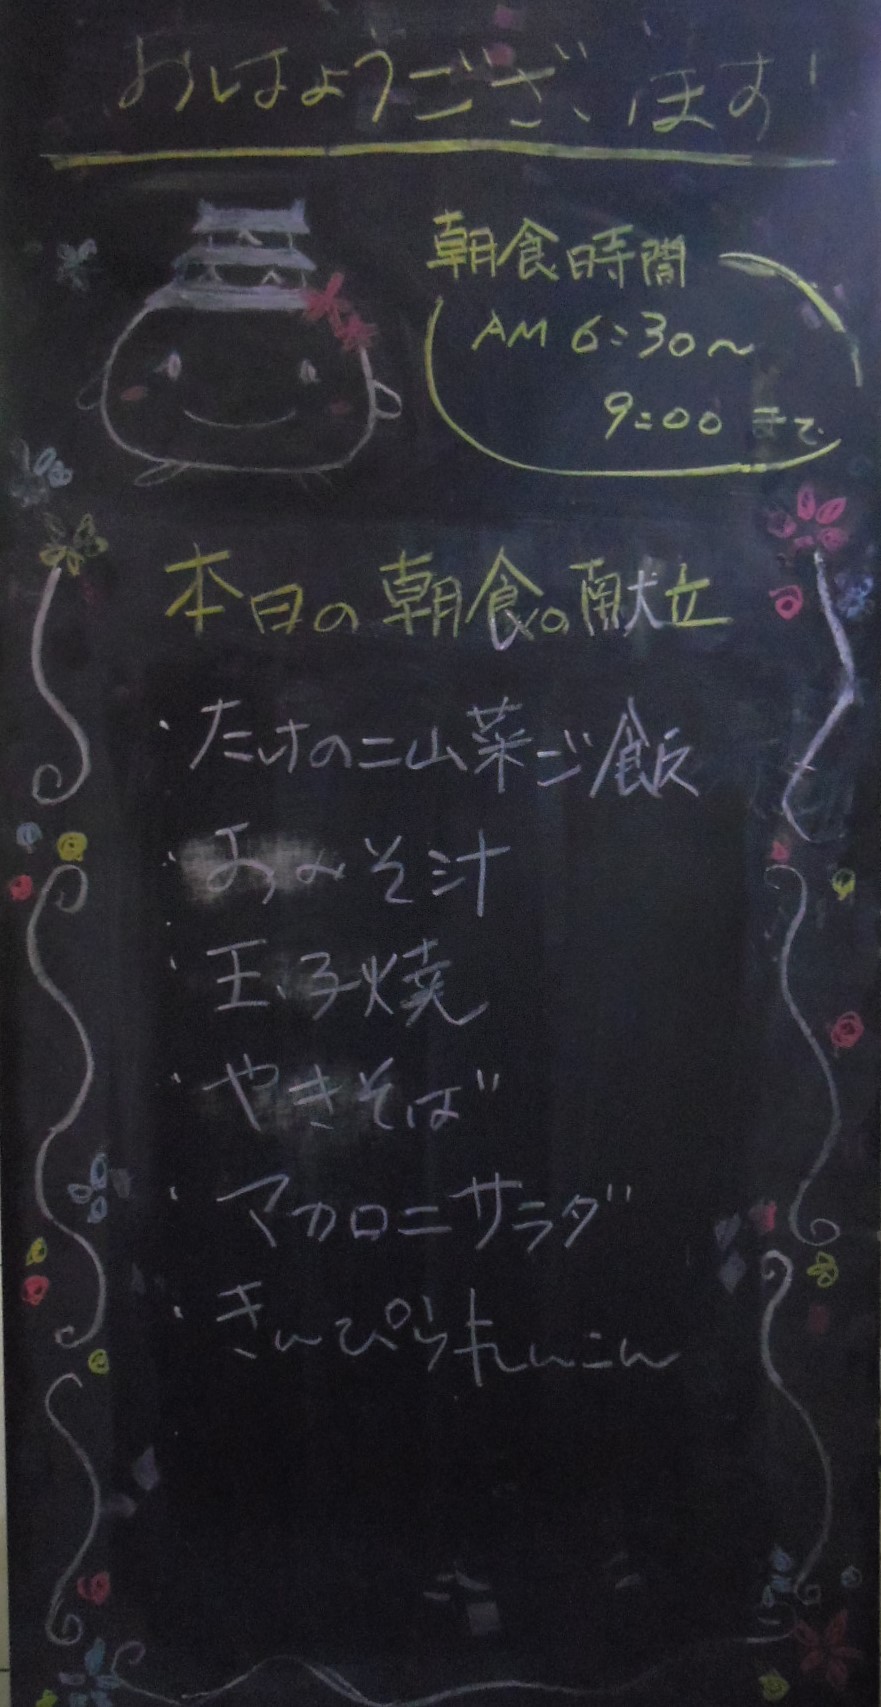 おはようございます!
朝食時間
AM 6:30〜
9:00 まで
本日の朝食の献立
・たけのこ山菜ご飯
・おみそ汁
・玉子焼
・やきそば
・マカロニサラダ
・きんぴられんこん